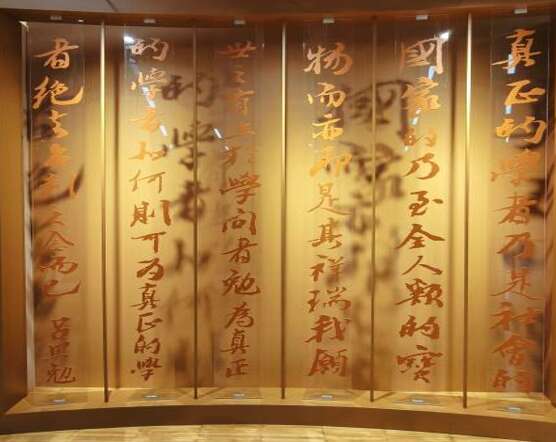 真正的學者乃是社會的
國家的乃至全人類的寶
物而亦即是其祥瑞我願
世之有志於學問者勉為真正
的學者如何則可為真正的學
者絕去名利之念而已 呂思勉